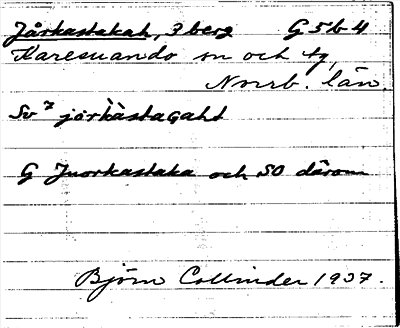 Jårkastakah, 3 berg G 5 b 4
Karesuando sn och tg,
Norrb. län.
Sv⁷ jårkàstagaht
G Juorkastaka och SO därom
Björn Collinder 1937.